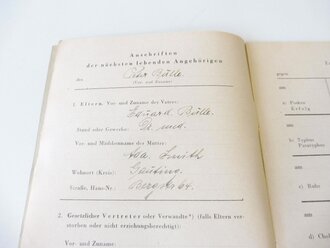 Anschriften
der nächsten lebenden Angehörigen
des Bülle
(Vor- und Zuname)
1. Eltern. Vor- und Zuname des Vaters:
Eduard Bülle
Stand oder Gewerbe: Dr. med.
Vor- und Mädchenname der Mutter:
Ada Smith
Wohnort (Kreis): Gauting
Straße, Haus-Nr.: Bergstr. 64
2. Gesetzlicher Vertreter oder Verwandte*) (falls Eltern ver-
storben oder nicht erziehungsberechtigt):
Vor- und Zuname:
gegen
a) Pocken
Erfolg
b) Typhus
Paratyphus
c) Ruhr